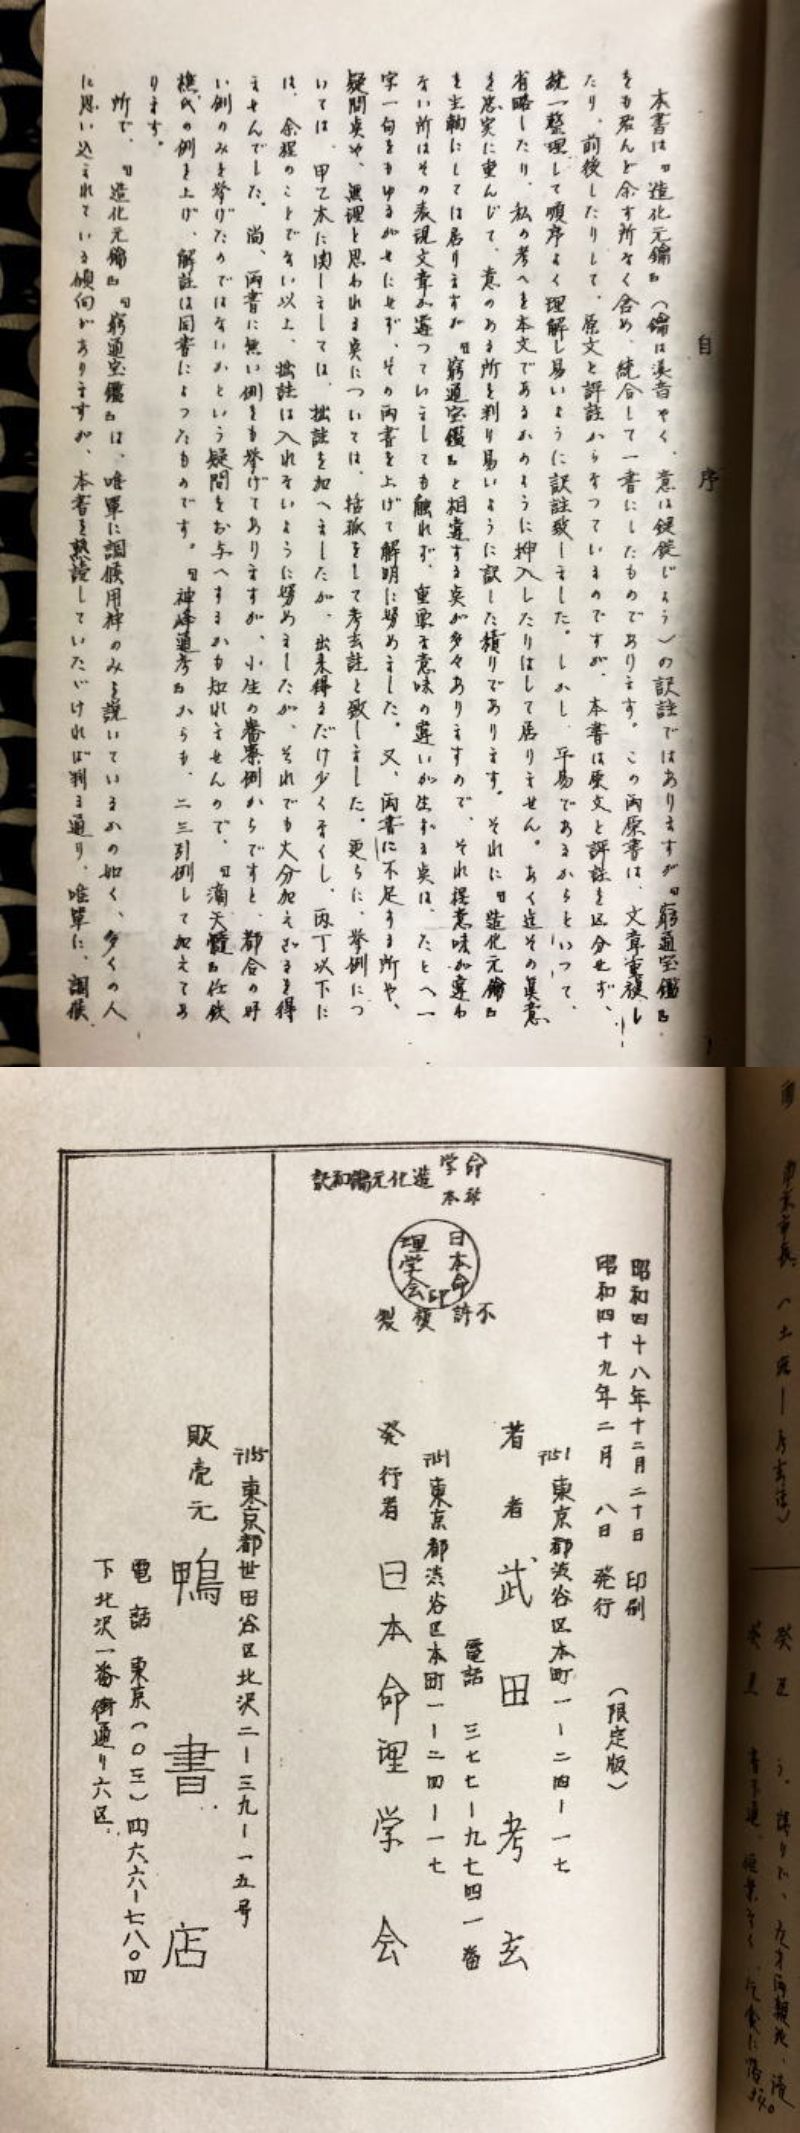 自序
本書は『造化元鑰』(鑰は漢音やく、意は錠錠じょう)の訳註ではありますが『窮通宝鑑』
をも殆んど余す所なく含め、統合して一書にしたものであります。この両原書は、文章重複し
たり、前後したりして、原文と評註からなつているのですが、本書は原文と評註を区分せず、
統一整理して順序よく理解し易いように訳註致しました。しかし、平易であるからといつて、
省略したり、私の考へを本文であるかのように挿入したりはして居りません。あく迄その真意
を忠実に重んじて、意のある所を判り易いように訳した積りであります。それに『造化元鑰』
を主軸にしては居りますが『窮通宝鑑』と相違する点が多々ありますので、それ程意味が違わ
ない所はその表現文章が違つていましても触れず、重要な意味の違いが生ずる点は、たとへ一
字一句をもゆるがせにせず、その両書を上げて解明に努めました。又、両書に不足する所や、
疑問点や、無理と思われる点については、括弧をして考玄註と致しました。更らに、挙例につ
いては、甲乙木に関しましては、拙註を加へましたが、出来得るだけ少くなくし、丙丁以下に
は、余程のことでない以上、拙註は入れないように努めましたが、それでも大分加えざるを得
ませんでした。尚、両書に無い例をも挙げてありますが、小生の審案例からですと、都合の好
い例のみを挙げたのではないかという疑問をお与へするかも知れませんので、『滴天髓』任鉄
樵氏の例を上げ、解註は同書によつたものです。『神峰通考』からも、二三引例して加えてあ
ります。
所で、『造化元鑰』『窮通宝鑑』は、唯単に調候用神のみを説いているかの如く、多くの人
に思い込まれている傾向がありますが、本書を熟読していただければ判る通り、唯単に、調候
昭和四十八年十二月二十日 印刷
昭和四十九年二月 八日 発行
(限定版)
〒151 東京都渋谷区本町一ー二四ー一七
著者 武田考玄
電話 三七七ー九七四一番
〒151 東京都渋谷区本町一ー二四ー一七
発行者 日本命理学会
命学
造化元鑰和訳
日本命理学会印
不許複製
〒155 東京都世田谷区北沢二ー三九ー一五号
販売元 鴨書店
電話 東京(〇三)四六六ー七八〇四
下北沢一番街通り六区